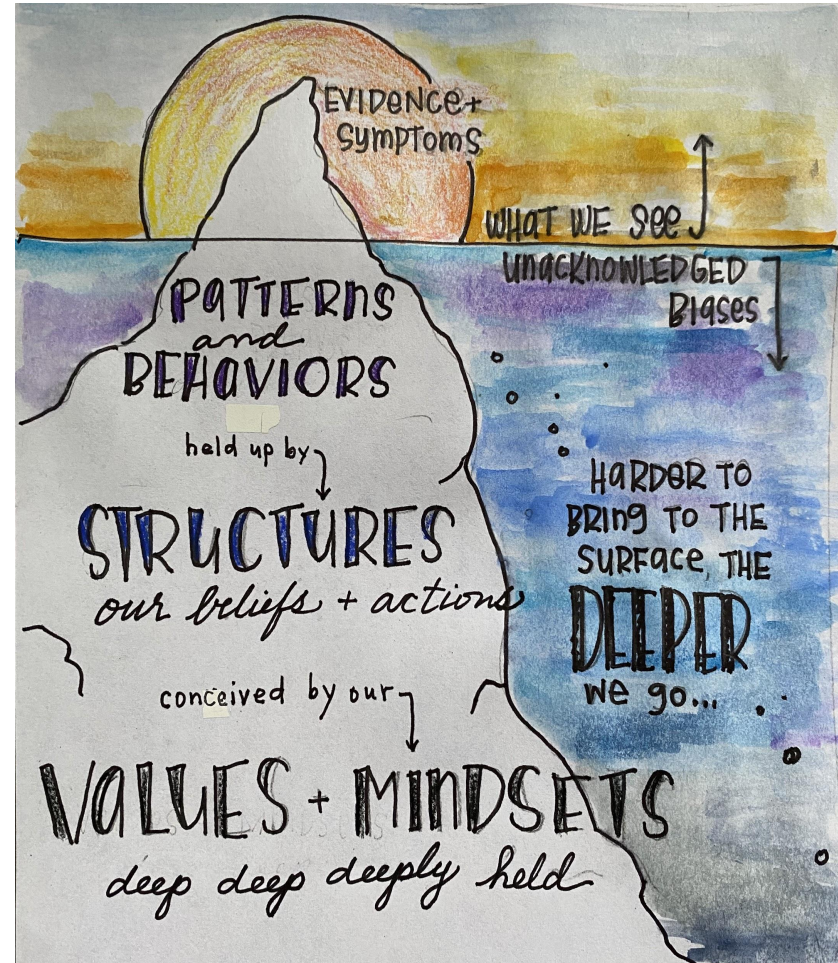 EVIDENCE +
SYMPTOMS
WHAT WE SEE
UNACKNOWLEDGED
BIASES
PATTERNS
and
BEHAVIORS
held up by
STRUCTURES
our beliefs + actions
HARDER TO
BRING TO THE
SURFACE, THE
DEEPER
we go...
conceived by our
VALUES + MINDSETS
deep deep deeply held